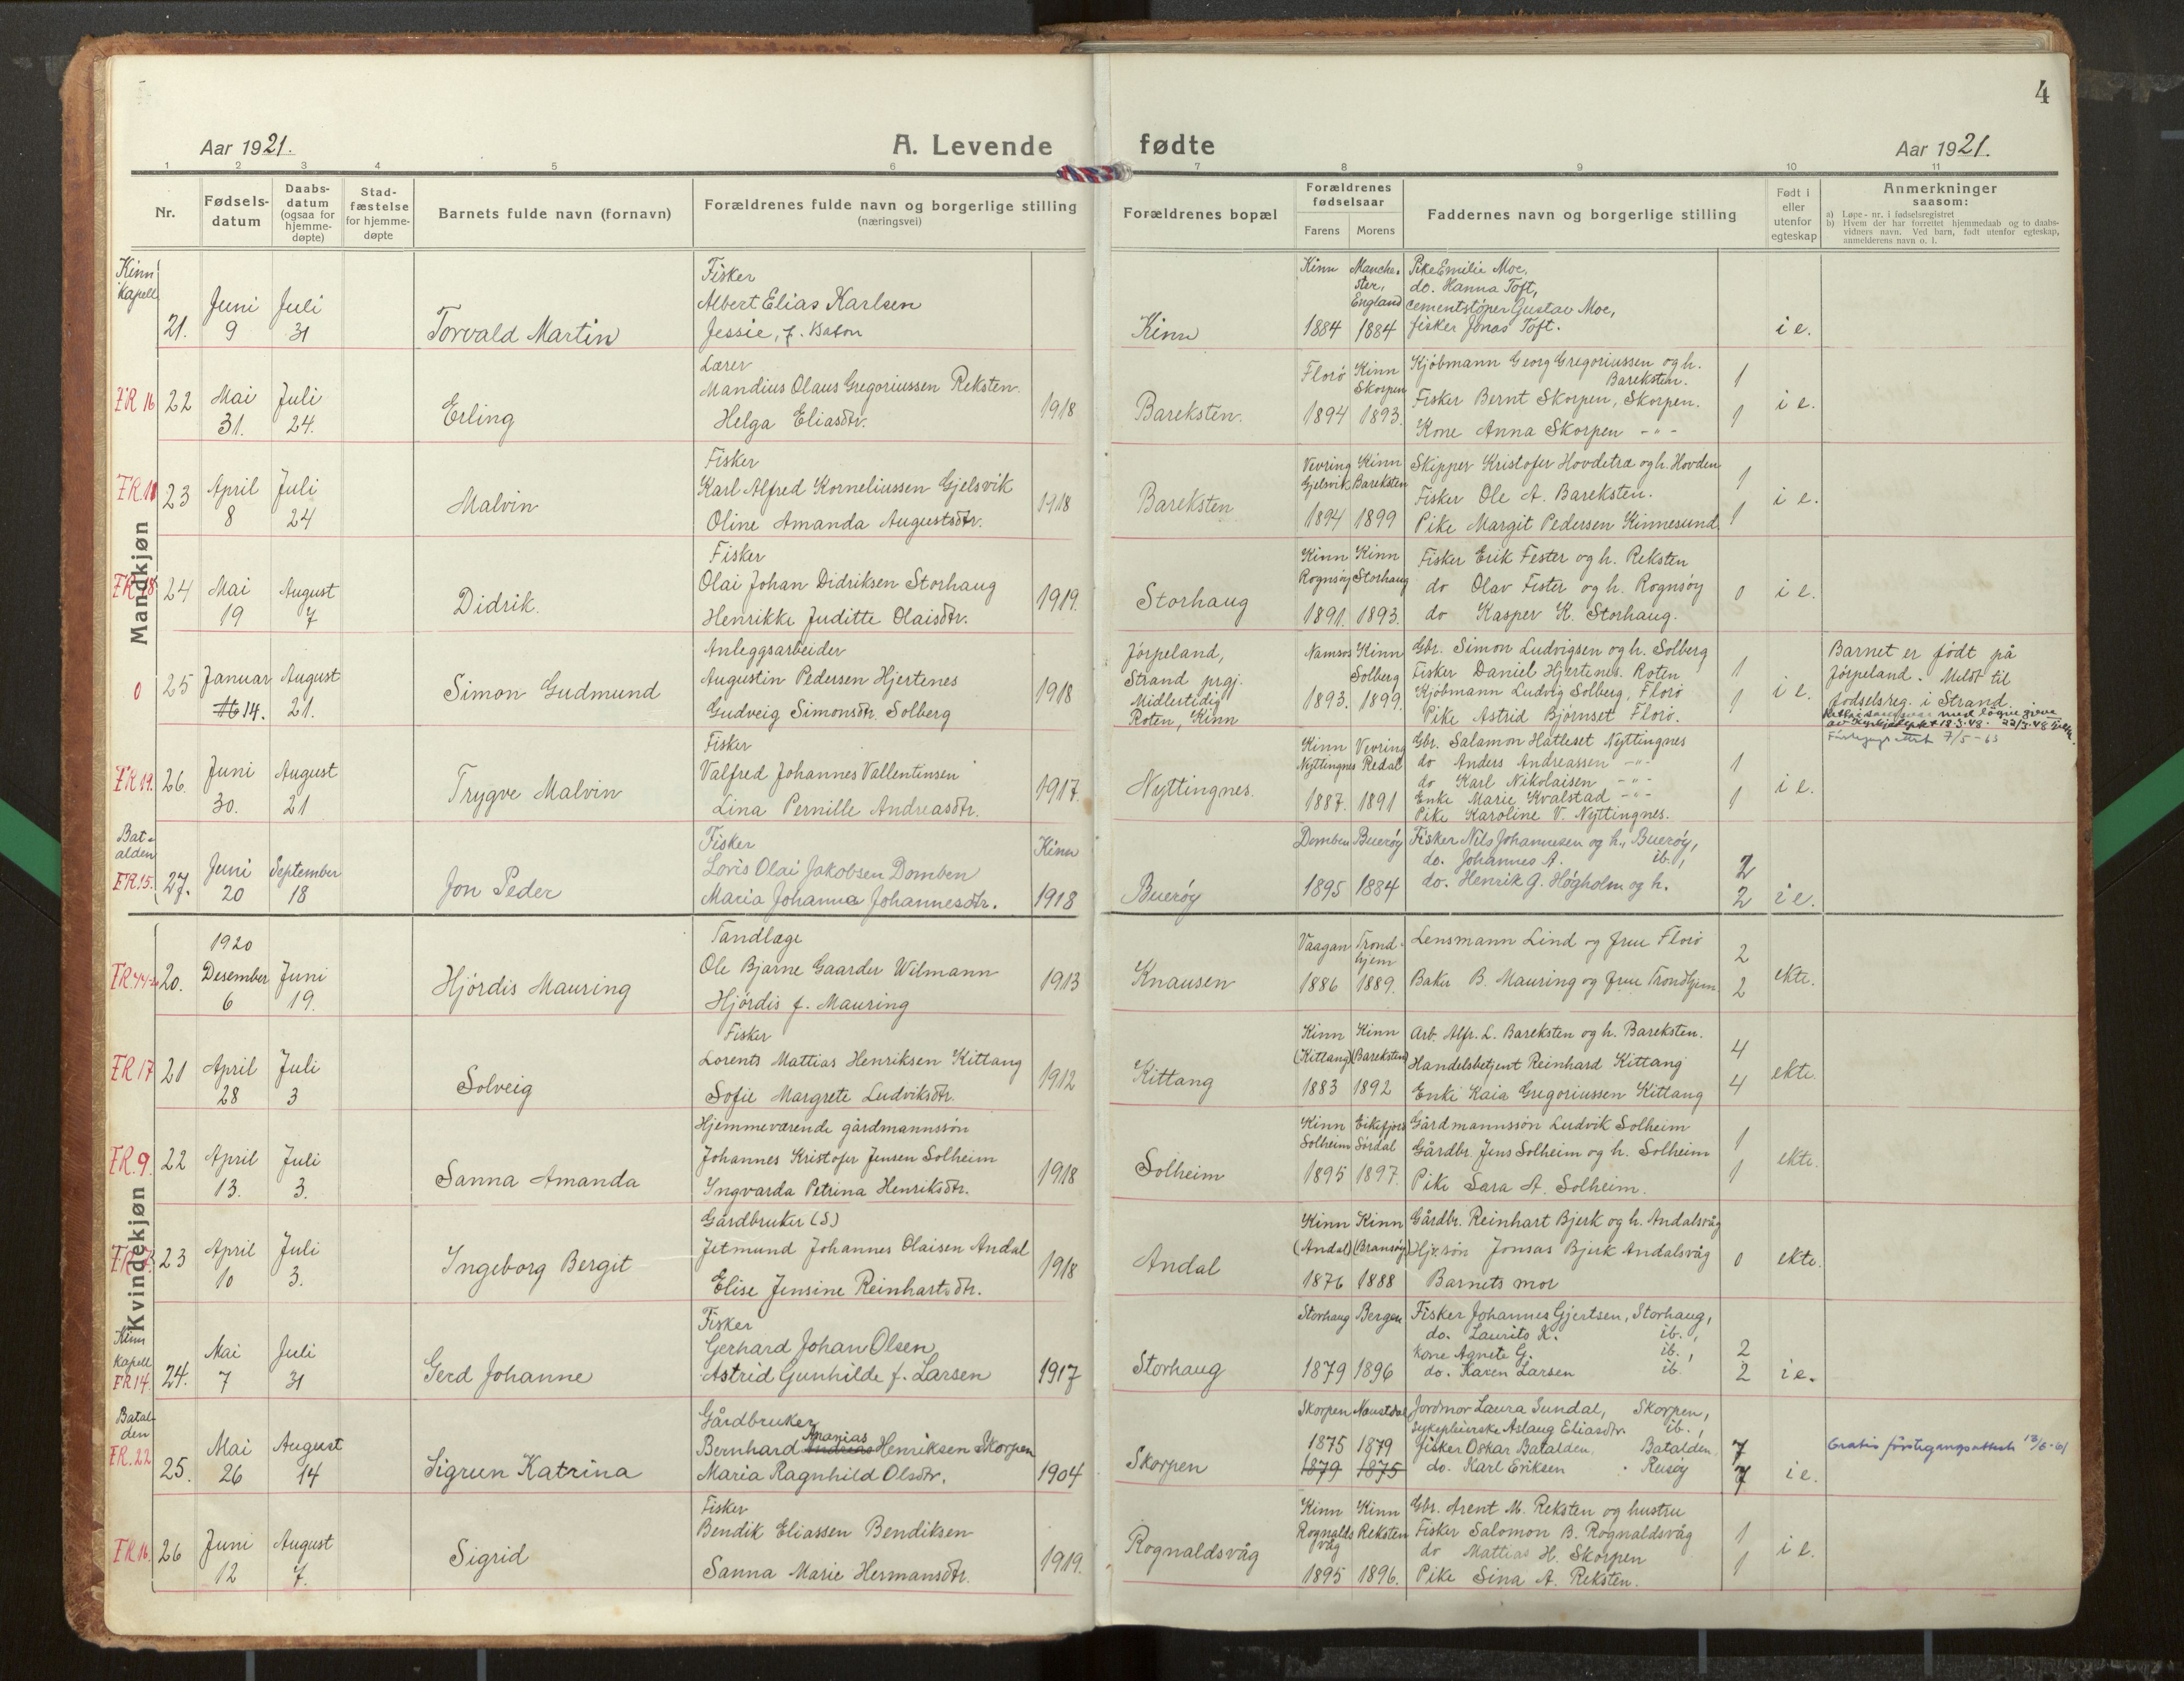 4
Aar 1921.
A. Levende fødte
Aar 1921.
1 2 3 4 5 6 7 8 9 10 11
Nr.
Fødsels-
datum
Daabs-
datum
(ogsaa for
hjemme-
døpte)
Stad-
fæstelse
for hjemme-
døpte
Barnets fulde navn (fornavn)
Forældrenes fulde navn og borgerlige stilling
(næringsvei)
Forældrenes bopæl
Forældrenes
fødselsaar
Farens Morens
Faddernes navn og borgerlige stilling
Født i
eller
utenfor
egteskap
Anmerkninger
saasom:
a) Løpe-nr. i fødselsregistret
b) Hvem der har forrettet hjemmedaab og to daabs-
vidners navn. Ved barn, født utenfor egteskap,
anmelderens navn o. l.
Mandkjøn
Kinn
kapell
21. Juni 9 Juli 31
Torvald Martin
Fisker
Albert Elias Karlsen
Jessie, f.
Kinn
Kinn 1884
Manche-
ster,
England 1884
Pike Emilie Moe,
do. Hanna Toft,
cementstøper Gustav Moe,
fisker Jonas Toft.
i e.
FR 16 22 Mai 31. Juli 24.
Erling
Lærer
Mandius Olaus Gregoriussen Reksten
Helga Eliasdtr.
1918
Bareksten.
Florø 1894
Kinn
Skorpen 1893.
Kjøbmann Georg Gregoriussen og h.
Bareksten.
Fisker Bernt Skorpen, Skorpen.
Kone Anna Skorpen -"-
1
1
i e.
23 April 8 Juli 24
Malvin
Fisker
Karl Alfred Korneliussen Gjelsvik
Oline Amanda Augustsdtr.
1918
Bareksten
Vevring
Gjelsvik 1894
Kinn
Bareksten 1899
Skipper Kristofer Hovdetræ og h. Hovden
Fisker Ole A. Bareksten.
Pike Margit Pedersen Kinnesund
1
1
i e.
FR 18 24 Mai 19 August 7
Didrik.
Fisker
Olai Johan Didriksen Storhaug
Henrikke Juditte Olaisdtr.
1919.
Storhaug
Kinn
Rognsøy 1891.
Kinn
Storhaug 1893.
Fisker Erik Fester og h. Reksten
do Olav Fister og h. Rognsøy
do Kasper K. Storhaug.
0
i e.
0 25 Januar 16 14. August 21.
Simon Gudmund
Anleggsarbeider
Augustin Pedersen Hjertenes
Gudveig Simonsdtr. Solberg
1918
Jørpeland,
Strand prgj.
Midlertidig
Roten, Kinn
Namsos 1893.
Kinn
Solberg 1899.
Gbr. Simon Ludvigsen og h. Solberg
Fisker Daniel Hjertenes. Roten
Kjøbmann Ludvig Solberg, Florø
Pike Astrid Bjørnset Florø.
1
1
i e.
Barnet er født på
Jørpeland. Meldt til
fødselsreg. i Strand.
7/5-63
FR 19. 26. Juni 30. August 21
Trygve Malvin
Fisker
Valfred Johannes Vallentinsen
Lina Pernille Andreasdtr.
1917.
Nyttingnes.
Kinn
Nyttingnes 1887.
Vevring
Redal 1891
Gbr. Salamon Hatleset Nyttingnes
do Anders Andreassen -"-
do Karl Nikolaisen -"-
Enke Marie Kvalstad -"-
Pike Karoline V. Nyttingnes.
1
1
i e.
Bat-
alden
FR 15. 27. Juni 20 September 18
Jon Peder
Fisker
Loris Olai Jakobsen Domben
Maria Johanna Johannesdtr.
Kinn
1918
Buerøy
Domben 1895
Buerøy 1884
Fisker Nils Johannesen og h., Buerøy,
do. Johannes A. ib.,
do. Henrik G. Høgholm og h.
2
2
i e.
Kvindekjøn
20. 1920 Desember 6 Juni 19.
Hjørdis Mauring
Tandlæge
Ole Bjarne Gaarder Wilmann
Hjørdis f. Mauring
1913
Knausen
Vaagan 1886
Trond-
hjem 1889.
Lensmann Lind og frue Florø
Baker B. Mauring og frue Trondhjem.
2
2
ekte.
FR 17 21 April 28 Juli 3
Solveig
Fisker
Lorents Mattias Henriksen Kittang
Sofie Margrete Ludviksdtr.
1912
Kittang
Kinn
(Kittang) 1883
Kinn
(Bareksten) 1892
Arb. Alfr. L. Bareksten og h. Bareksten.
Handelsbetjent Reinhard Kittang
Enke Kaia Gregoriussen Kittang
4
4
ekte.
FR. 9. 22 April 13. Juli 3.
Sanna Amanda
Hjemmeværende gårdmannssøn
Johannes Kristofer Jensen Solheim
Ingvarda Petrina Henriksdtr.
1918
Solheim
Kinn
Solheim 1895
Eikefjord
Sørdal 1897.
Gårdmannssøn Ludvik Solheim
Gårdbr. Jens Solheim og h. Solheim
Pike Sara A. Solheim.
1
1
ekte.
23 April 10 Juli 3.
Ingeborg Bergit
Gårdbruker (S)
Jetmund Johannes Olaisen Andal
Elise Jensine Reinhartsdtr.
1918
Andal
Kinn
(Andal) 1876
Kinn
(Bransøy) 1888
Gårdbr. Reinhart Bjerk og h. Andalsvåg
Hj.v. søn Jonsas Bjerk Andalsvåg
Barnets mor
0
ekte.
Kinn
kapell
FR 14. 24. Mai 7 Juli 31
Gerd Johanne
Fisker
Gerhard Johan Olsen
Astrid Gunhilde f. Larsen
1917
Storhaug
Storhaug 1879
Bergen 1896
Fisker Johannes Gjertsen, Storhaug,
do. Laurits K. ib.,
Kone Agnete G. ib.,
do. Karen Larsen ib.
2
2
i e.
Batal-
den
FR. 22 25. Mai 26 August 14
Sigrun Katrina
Gårdbruker
Bernhard Andreas Ananias Henriksen Skorpen
Maria Ragnhild Olsdtr.
1904
Skorpen
Skorpen 1875 1879
Naustdal 1879 1875
Jordmor Laura Sundal, Skorpen,
Sykepleierske Aslaug Eliasdtr. ib.,
Fisker Oskar Batalden, Batalden.
do. Karl Eriksen Reisøy
7
7
i e.
Gratis førstegangsattest 13/6-61
FR 16. 26 Juni 12 August 7.
Sigrid
Fisker
Bendik Eliassen Bendiksen
Sanna Marie Hermansdtr.
1919.
Rognaldsvåg
Kinn
Rognalds
våg 1895
Kinn
Reksten 1896.
Gbr. Arent M. Reksten og hustru
Fisker Salomon B. Rognaldsvåg
do Mattias H. Skorpen
Pike Sina A. Reksten.
1
1
i e.